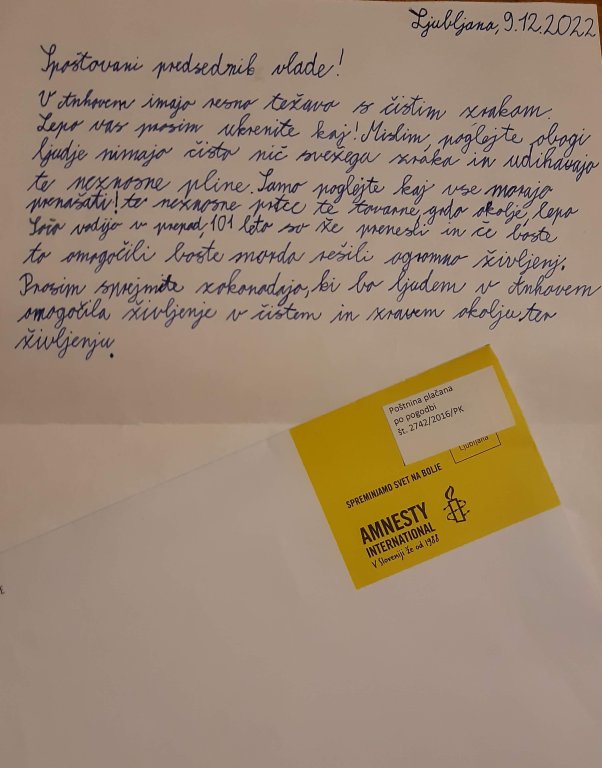 Ljubljana, 9.12.2022
Spoštovani predsednik vlade!
V Anhovem imajo resno težavo s čistim zrakom.
Lepo vas prosim ukrenite kaj! Mislim, poglejte, ubogi
ljudje nimajo čisto nič svežega zraka in vdihavajo
te neznosne pline. Samo poglejte kaj vse morajo
prenašati! te neznosne te tovarne, grdo okolje, lepo
Sočo vodijo v prepad, 101 leto so že prenesli in če boste
to omogočili boste morda rešili ogromno življenj.
Prosim sprejmite zakonodajo, ki bo ljudem v Anhovem
omogočila življenje v čistem in zravem okolju ter
življenju.
Poštnina plačana
po pogodbi
št. 2742/2016/PK
Ljubljana
SPREMINJAMO SVET NA BOLJE
AMNESTY
INTERNATIONAL
V Sloveniji že od 1988